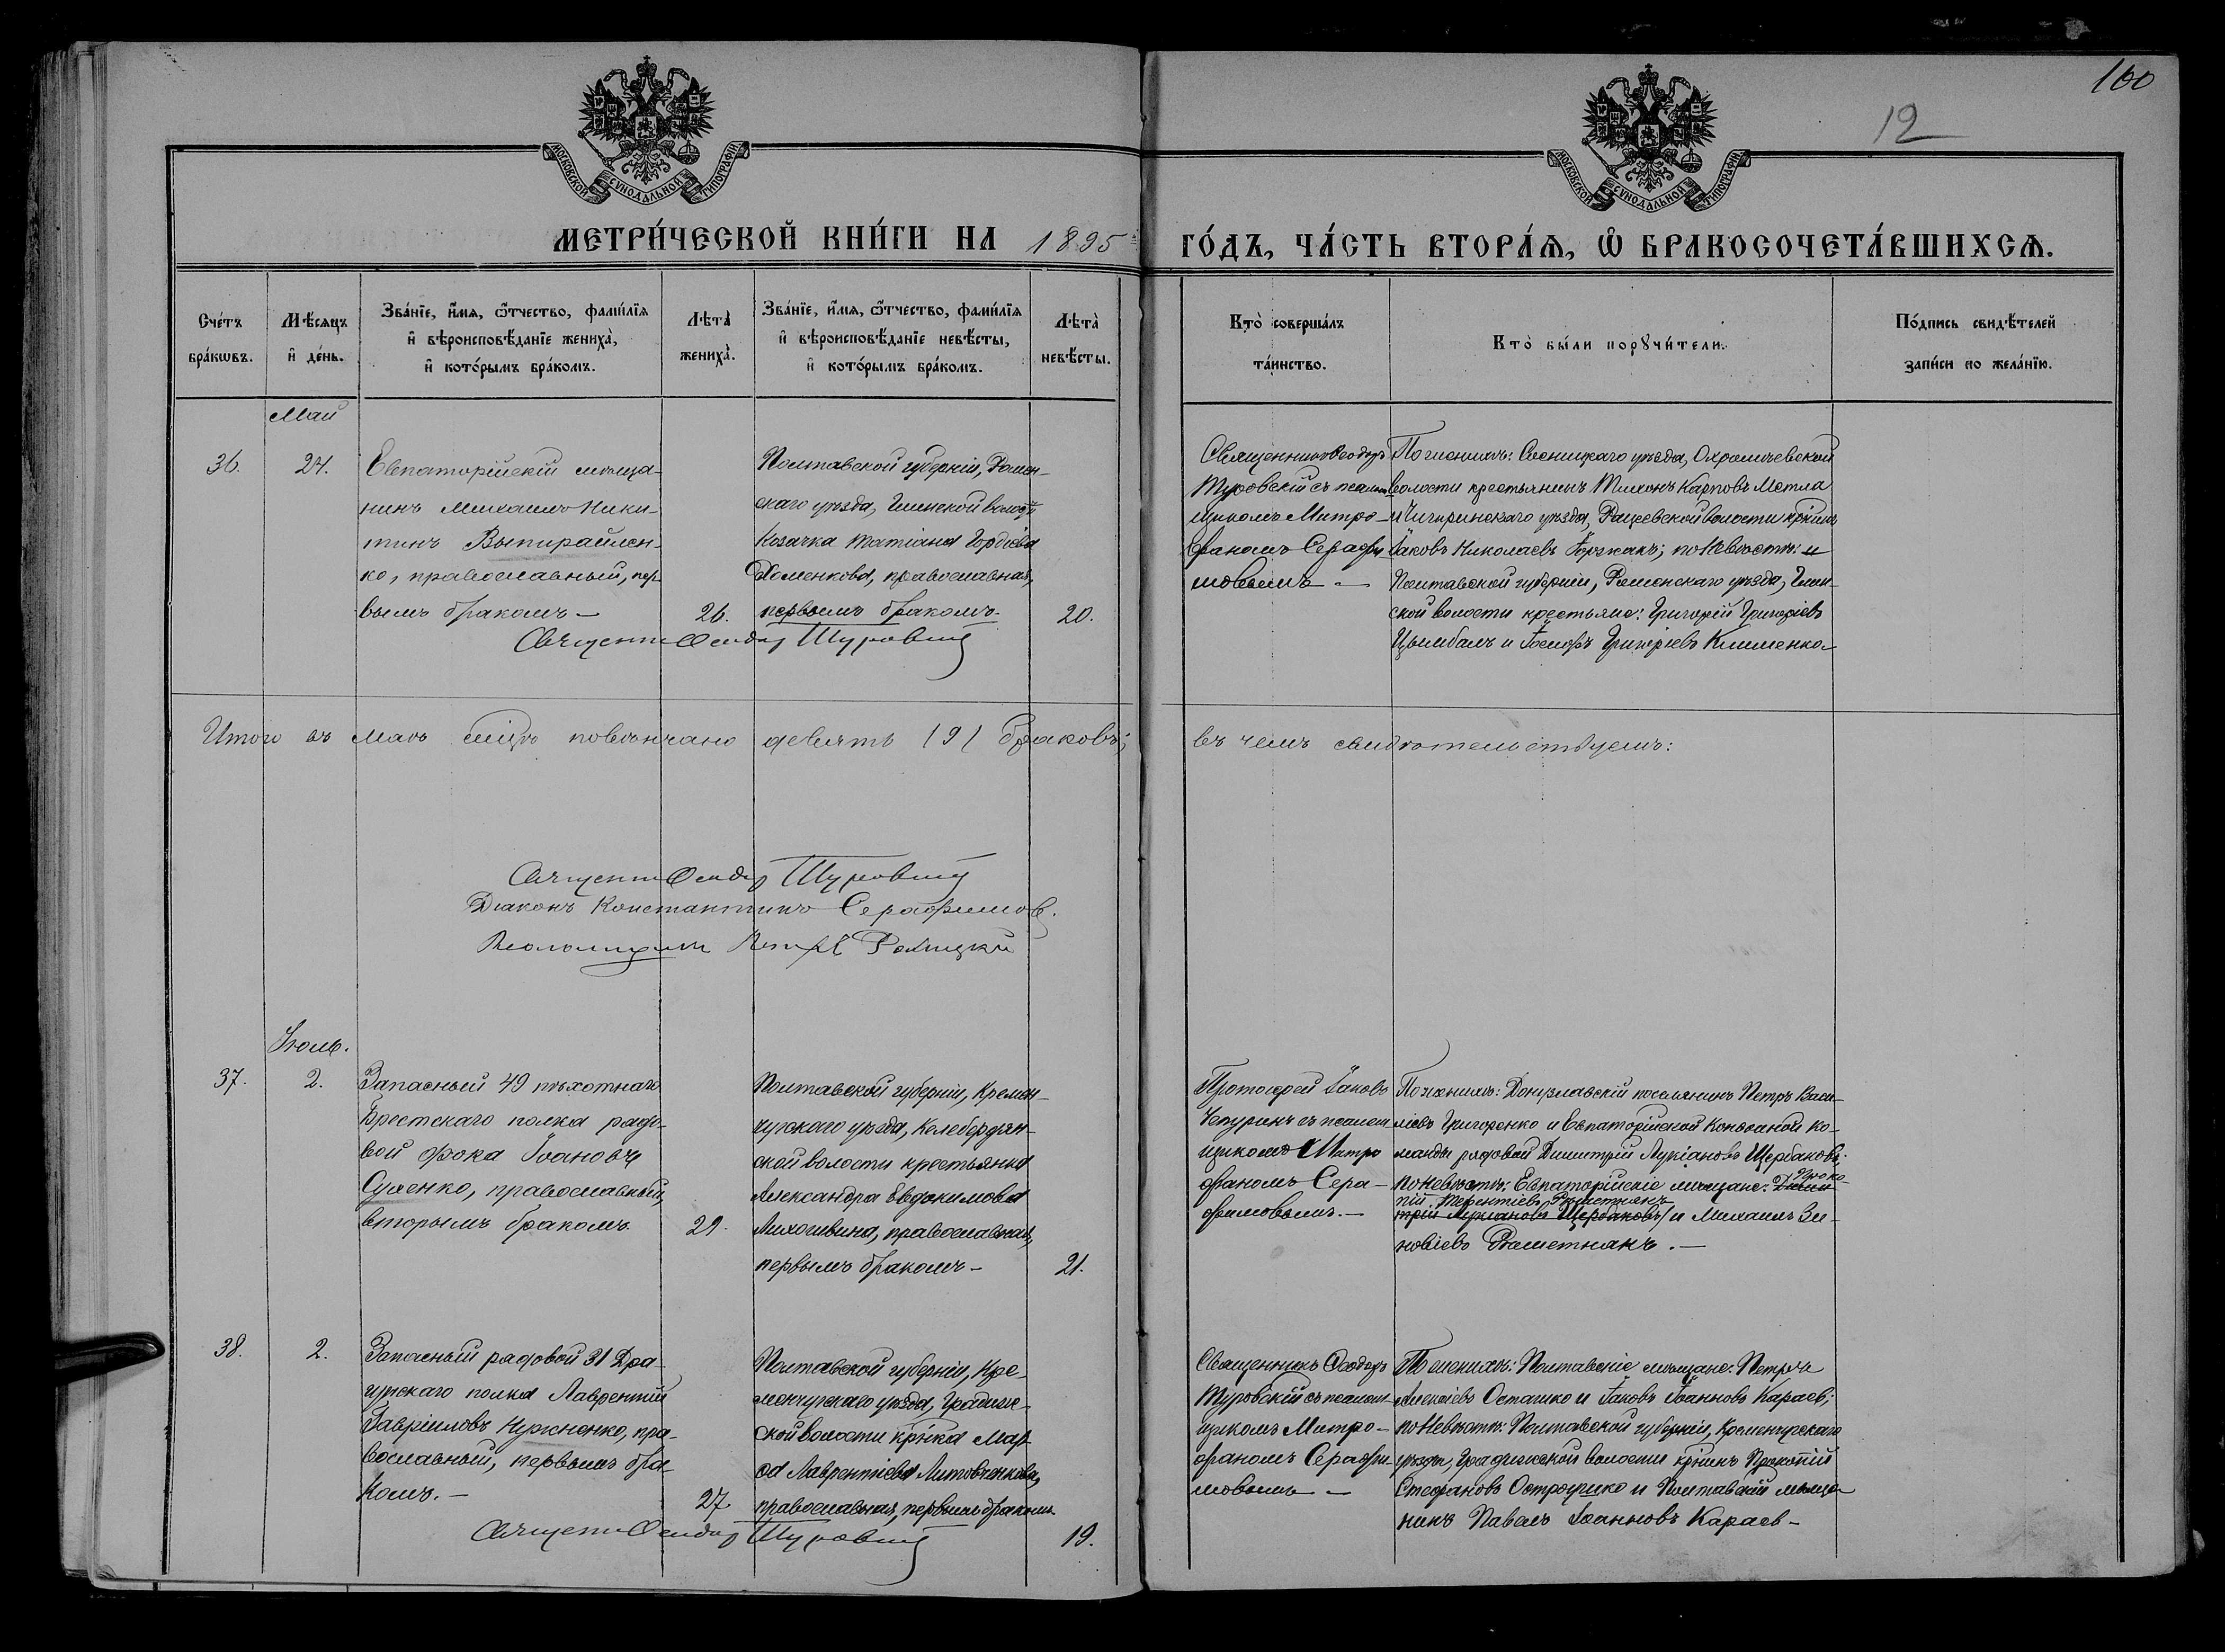 100
12
МОСКОВСКОЙ СУНОДАЛЬНОЙ ТИПОГРАФІИ
МОСКОВСКОЙ СУНОДАЛЬНОЙ ТИПОГРАФІИ
МЕТРИ́ЧЕСКОЙ КНИ́ГИ НА 1895 ГО́ДЪ, ЧА́СТЬ ВТОРА́Ѧ, Ѽ БРАКОСОЧЕТА́ВШИХСѦ.
Сче́тъ бра́кѡвъ.
Мѣ́сяцъ и҆ де́нь.
Зва́нїе, и҆́мѧ, ѻ҆́тчество, фамѝлїѧ и҆ вѣроисповѣ́данїе жениха̀, и҆ кото́рымъ бра́комъ.
Лѣта̀ жениха̀.
Зва́нїе, и҆́мѧ, ѻ҆́тчество, фамѝлїѧ и҆ вѣроисповѣ́данїе невѣ́сты, и҆ кото́рымъ бра́комъ.
Лѣта̀ невѣ́сты.
Кто̀ соверша́лъ та́инство.
Кто̀ бы́ли порꙋчи́тели.
По́дпись свидѣ́телей за́писи по жела́нїю.
Май
36.
24.
Евпаторійскій мѣща-
нинъ Михаилъ Ники-
тинъ Выпирайлен-
ко, православный, пер-
вымъ бракомъ —
26.
Полтавской губерніи, Ромен-
скаго уѣзда, Глинской волости
Козачка Татіана Гордіева
Хоменкова, православная,
первымъ бракомъ.
20.
Священникъ Ѳеодоръ
Туровскій съ псалом
щикомъ Митро-
фаномъ Серафи
мовымъ —
По женихѣ: Сосницкаго уѣзда, Охрамѣевской
волости крестьянинъ Тихонъ Карповъ Метла
и Чигиринскаго уѣзда, Рацеевской волости кр-инъ
Іаковъ Николаевъ Коржакъ; по Невѣстѣ:
Полтавской губерніи, Роменскаго уѣзда, Глин-
ской волости крестьяне: Григорій Григоріевъ
Цымбалъ и Іосифъ Григоріевъ Клименко —
Священн Ѳеодоръ Туровскій
Итого въ маѣ мѣсяцѣ повѣнчано девять (9) браковъ; въ чемъ свидѣтельствуемъ:
Священн Ѳеодоръ Туровскій
Діаконъ Константинъ Серафимовъ.
Псаломщикъ Петръ
Іюль.
37.
2.
Запасный 49 пѣхотнаго
Брестскаго полка рядо-
вой Фока Іоанновъ
Сухенко, православный,
вторымъ бракомъ.
29.
Полтавской губерніи, Кремен-
чугскаго уѣзда, Келебердян-
ской волости крестьянка
Александра Евдокимова
Лихошвина, православная,
первымъ бракомъ —
21.
Протоіерей Іаковъ
Чепуринъ съ псалом
щикомъ Митро
фаномъ Сера-
фимовымъ. —
По женихѣ: Донузлавскій поселянинъ Петръ Васи-
льевъ Григоренко и Евпаторійской Конвойной ко-
манды рядовой Димитрій Лукіановъ Щербаковъ;
по Невѣстѣ: Евпаторійскіе мѣщане: Дими Проко-
пій Терентіевъ Рѣшетнякъ
трій Лукіановъ Щербаковъ/ и Михаилъ Зи-
новіевъ Рѣшетнякъ. —
38.
2.
Запасный рядовой 31 Дра-
гунскаго полка Лаврентій
Гавріиловъ Нужненко, пра-
вославный, первымъ бра-
комъ. —
27.
Полтавской губерніи, Кре-
менчугскаго уѣзда, Градиж-
ской волости кр-нка Мар-
ѳа Лаврентіева Литовченкова,
православная, первымъ бракомъ
19.
Священникъ Ѳеодоръ
Туровскій съ псалом-
щикомъ Митро-
фаномъ Серафи-
мовымъ —
По женихѣ: Полтавскіе мѣщане: Петръ
Алексіевъ Осташко и Іаковъ Іоанновъ Караевъ;
по Невѣстѣ: Полтавской губерніи, Кременчугскаго
уѣзда, Градижской волости кр-нинъ Прокопій
Стефановъ и Полтавскій мѣща-
нинъ Павелъ Іоанновъ Караевъ —
Священн Ѳеодоръ Туровскій